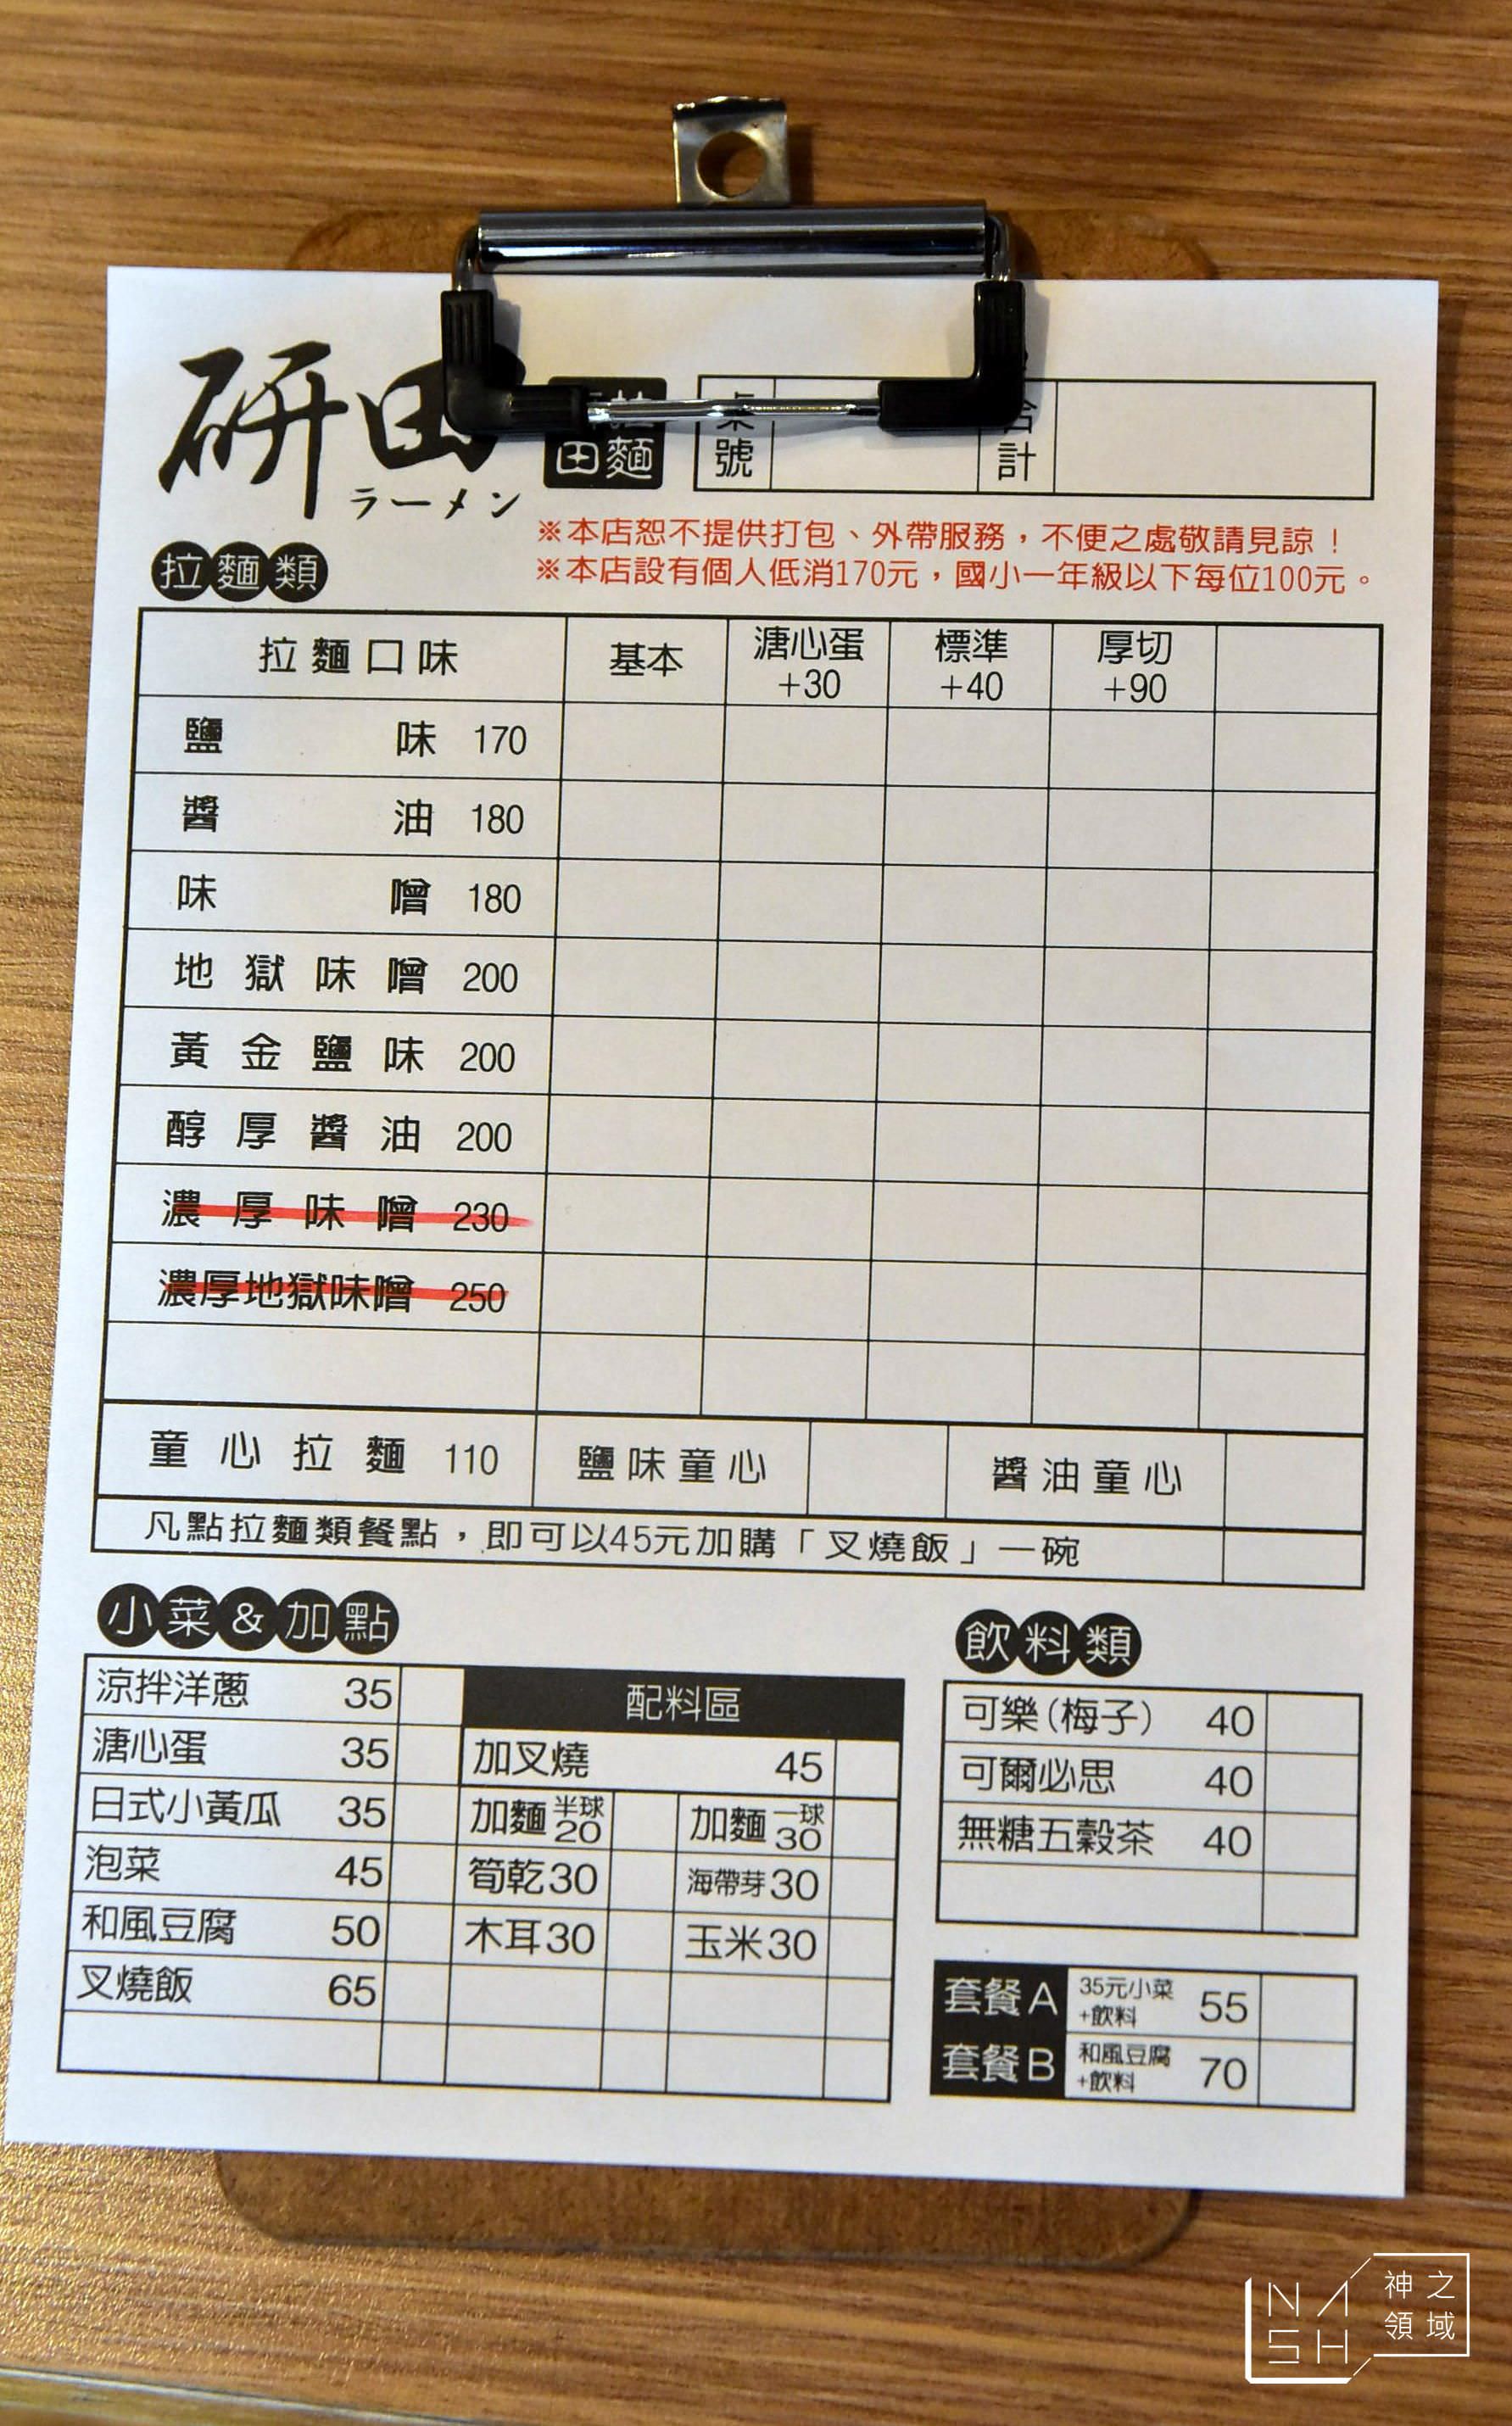 研田
ラーメン
田麵
桌號
合計
※本店恕不提供打包、外帶服務，不便之處敬請見諒！
※本店設有個人低消170元，國小一年級以下每位100元。
拉麵類
拉麵口味 基本 溏心蛋+30 標準+40 厚切+90
鹽味 170
醬油 180
味噌 180
地獄味噌 200
黃金鹽味 200
醇厚醬油 200
濃厚味噌 230
濃厚地獄味噌 250
童心拉麵 110 鹽味童心 醬油童心
凡點拉麵類餐點，即可以45元加購「叉燒飯」一碗
小菜&加點
涼拌洋蔥 35
溏心蛋 35
日式小黃瓜 35
泡菜 45
和風豆腐 50
叉燒飯 65
配料區
加叉燒 45
加麵半球20 加麵一球30
筍乾30 海帶芽30
木耳30 玉米30
飲料類
可樂(梅子) 40
可爾必思 40
無糖五穀茶 40
套餐A 35元小菜+飲料 55
套餐B 和風豆腐+飲料 70
NASH
神之領域